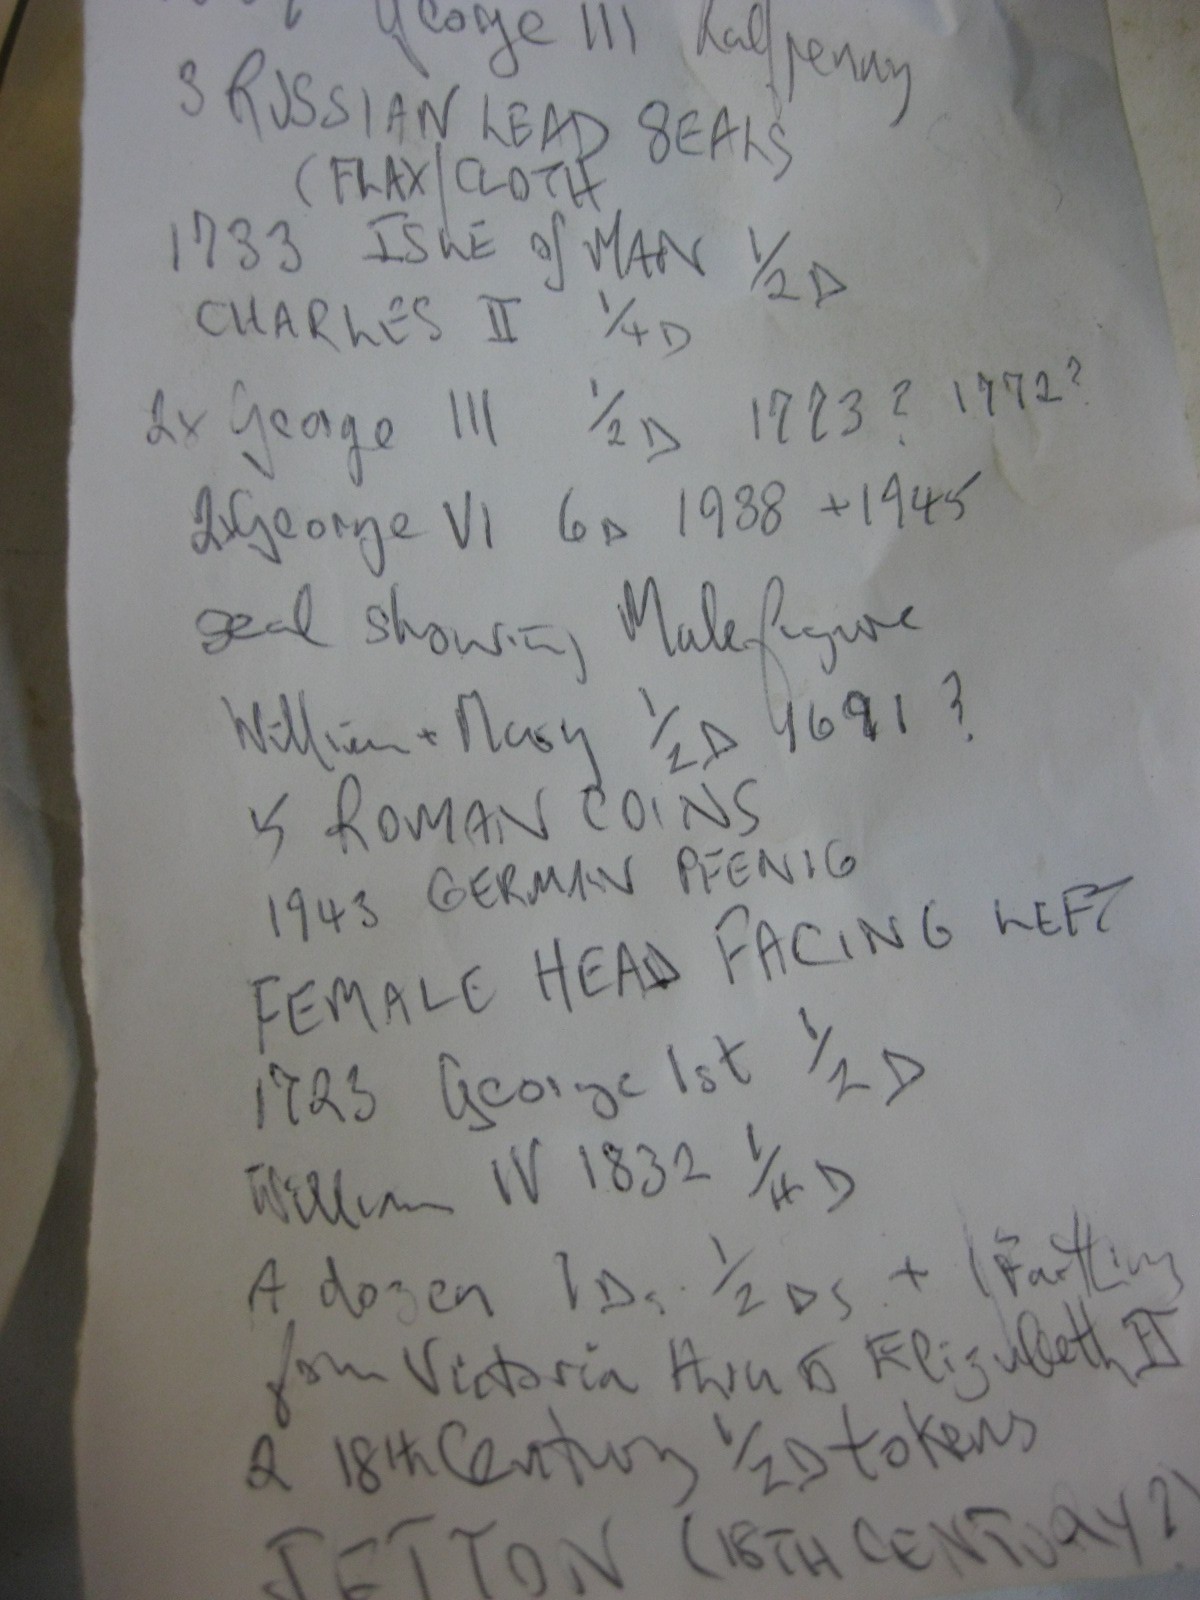 George III halfpenny
3 RUSSIAN LEAD SEALS
(FLAX/CLOTH
1733 ISLE of MAN 1/2 D
CHARLES II 1/4 D
2x George III 1/2 D 1773? 1772?
2x George VI 6D 1938 + 1945
seal showing Male figure
William + Mary 1/2 D 1691?
5 ROMAN COINS
1943 GERMAN PFENIG
FEMALE HEAD FACING LEFT
1723 George 1st 1/2 D
William IV 1832 1/4 D
A dozen 1Ds. 1/2 Ds + 1 Farthing
from Victoria thru to Elizabeth II
2 18th Century 1/2 D tokens
JETTON (18TH CENTURY?)